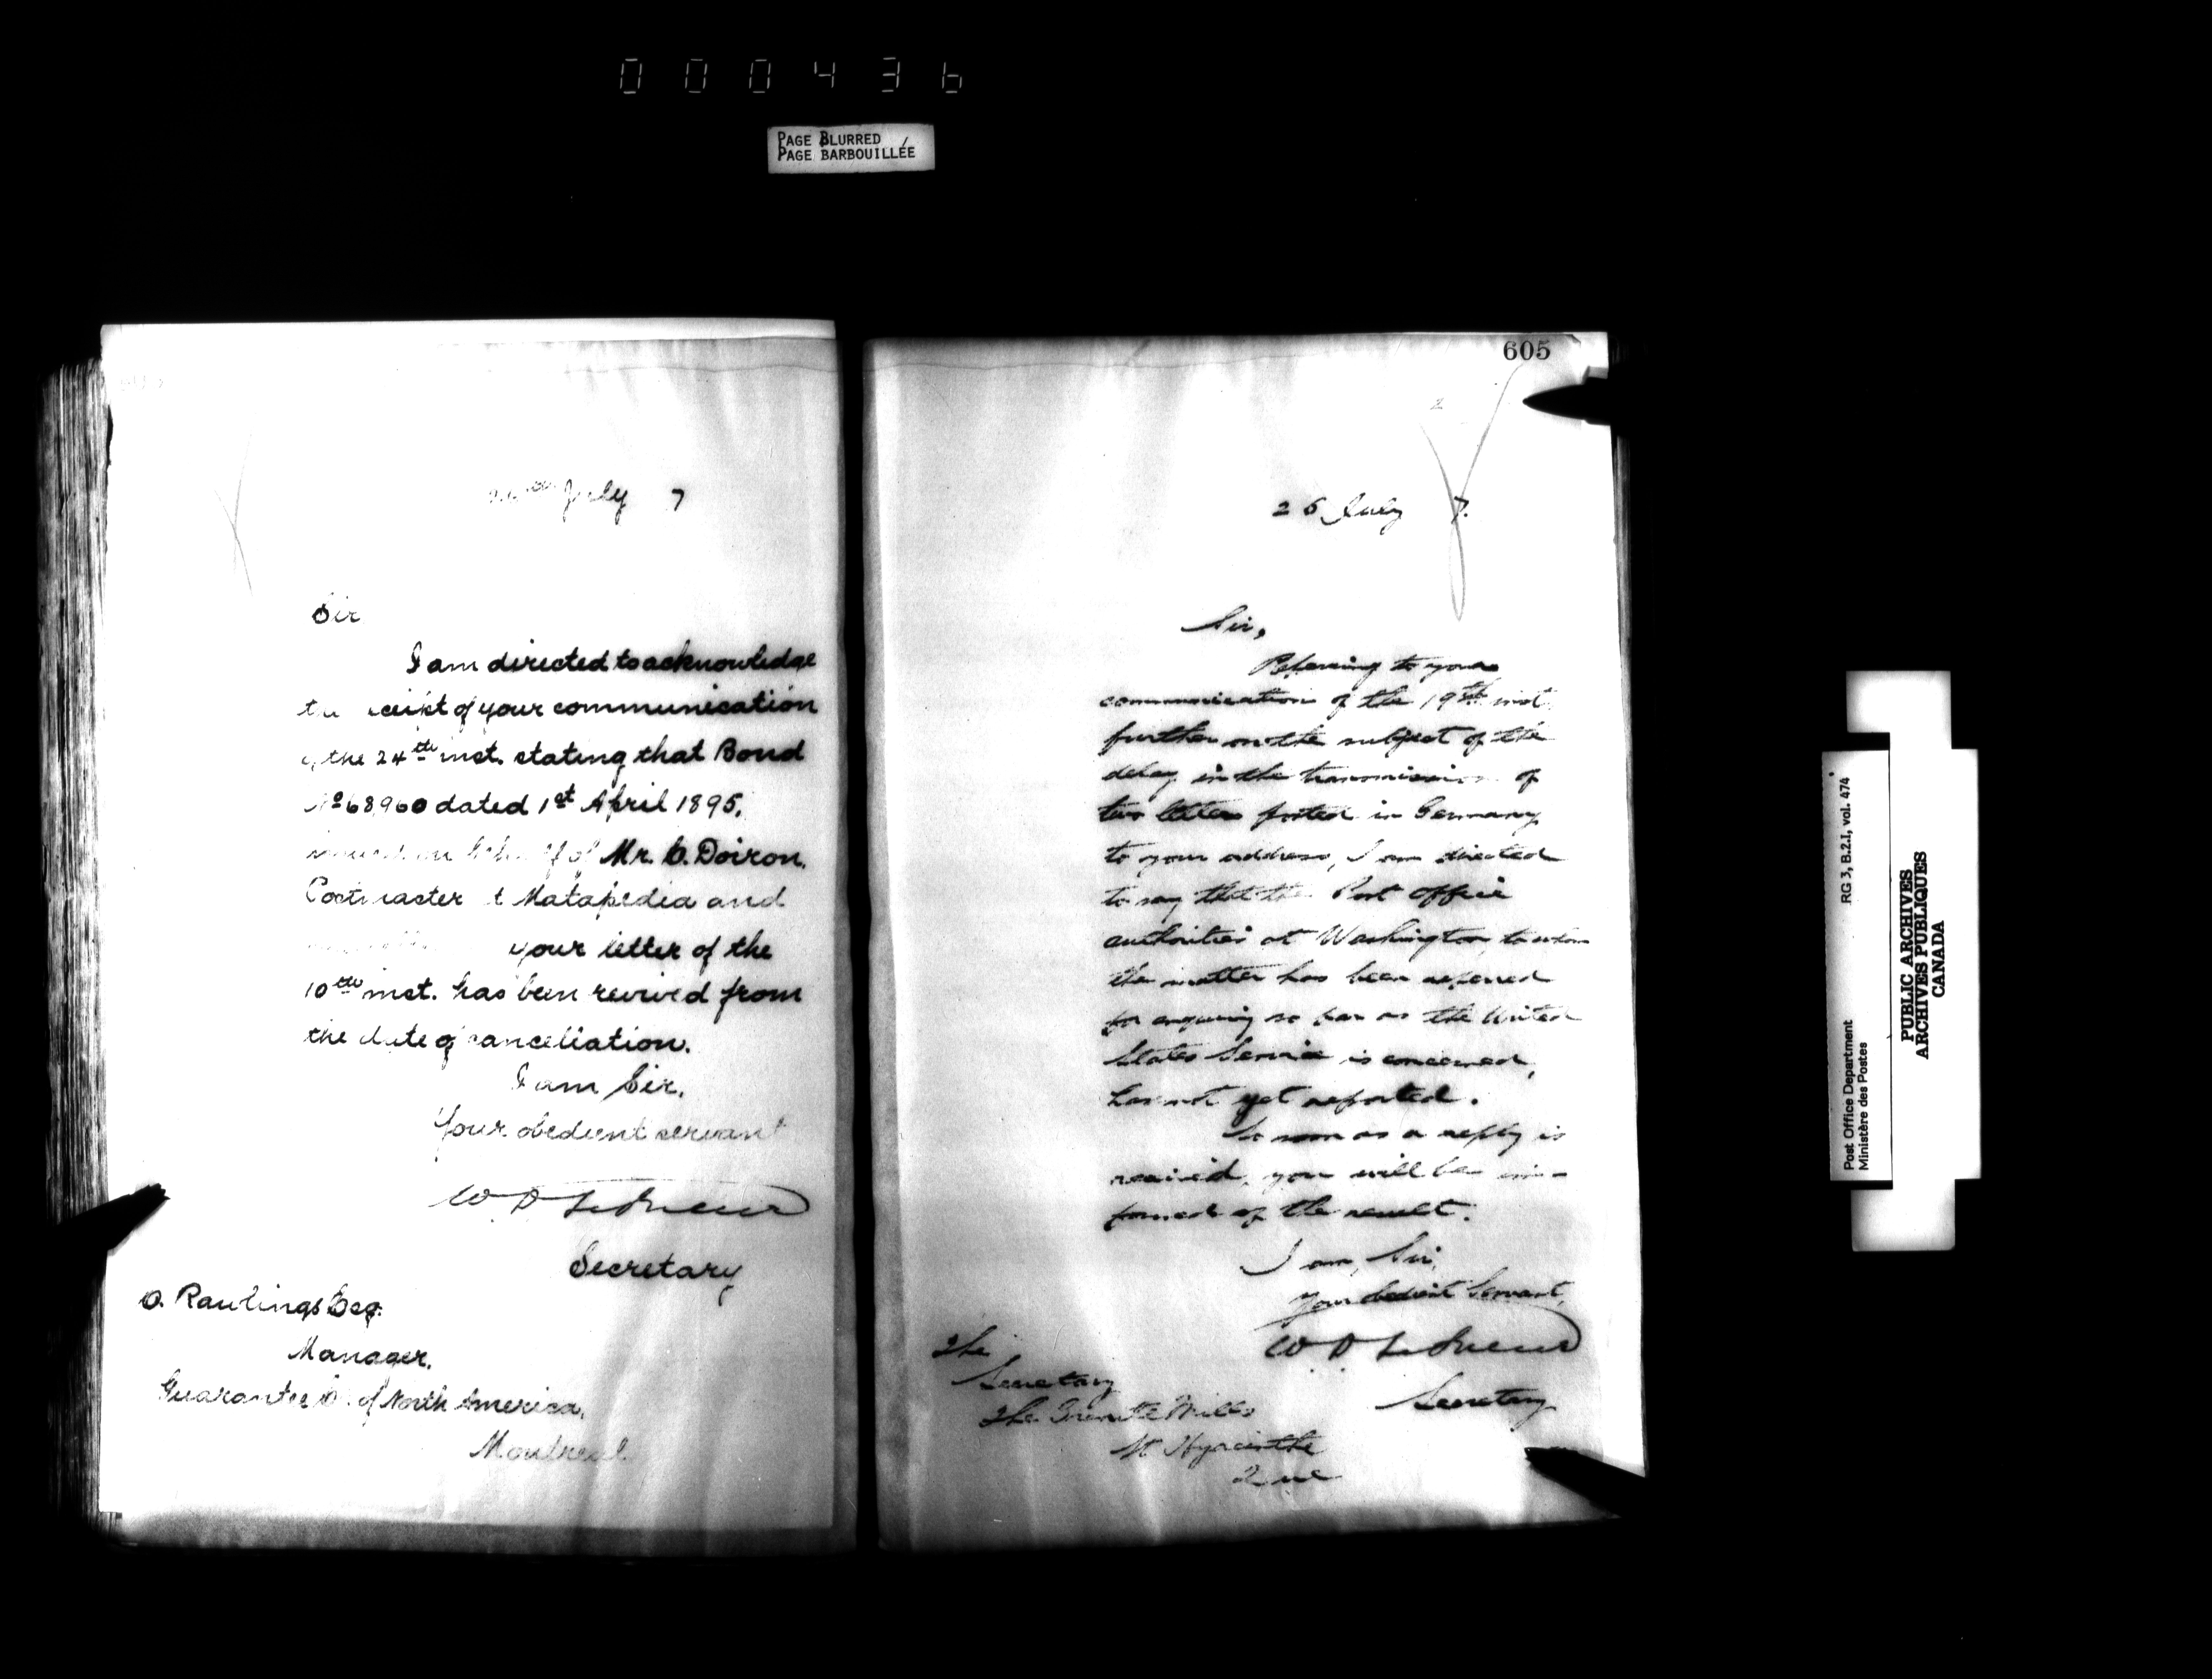 000436
PAGE BLURRED
PAGE BARBOUILLÉE
July 7
Sir
I am directed to acknowledge
receipt of your communication
of the 24th inst. stating that Bond
No 68960 dated 1st April 1895,
issued on behalf of Mr. C. Doiron,
Postmaster at Matapedia and
your letter of the
10th inst. has been revived from
the date of cancellation.
I am Sir,
Your obedient servant
W D LeSueur
Secretary
Rawlings Esq.
Manager,
Guarantee Co. of North America,
Montreal
605
2
26 July 7.
Sir,
Referring to your
communication of the 19th inst.
further on the subject of the
delay in the transmission of
two letters posted in Germany
to your address, I am directed
to say that the Post Office
authorities at Washington to whom
the matter has been referred
for enquiry so far as the United
States Service is concerned,
has not yet reported.
So soon as a reply is
received, you will be in-
formed of the result.
I am, Sir,
Your obedient Servant,
W D LeSueur
Secretary
The
Secretary
The Granite Mills
St Hyacinthe
Que
Post Office Department RG 3, B.2.I, vol. 474
Ministère des Postes
PUBLIC ARCHIVES
ARCHIVES PUBLIQUES
CANADA